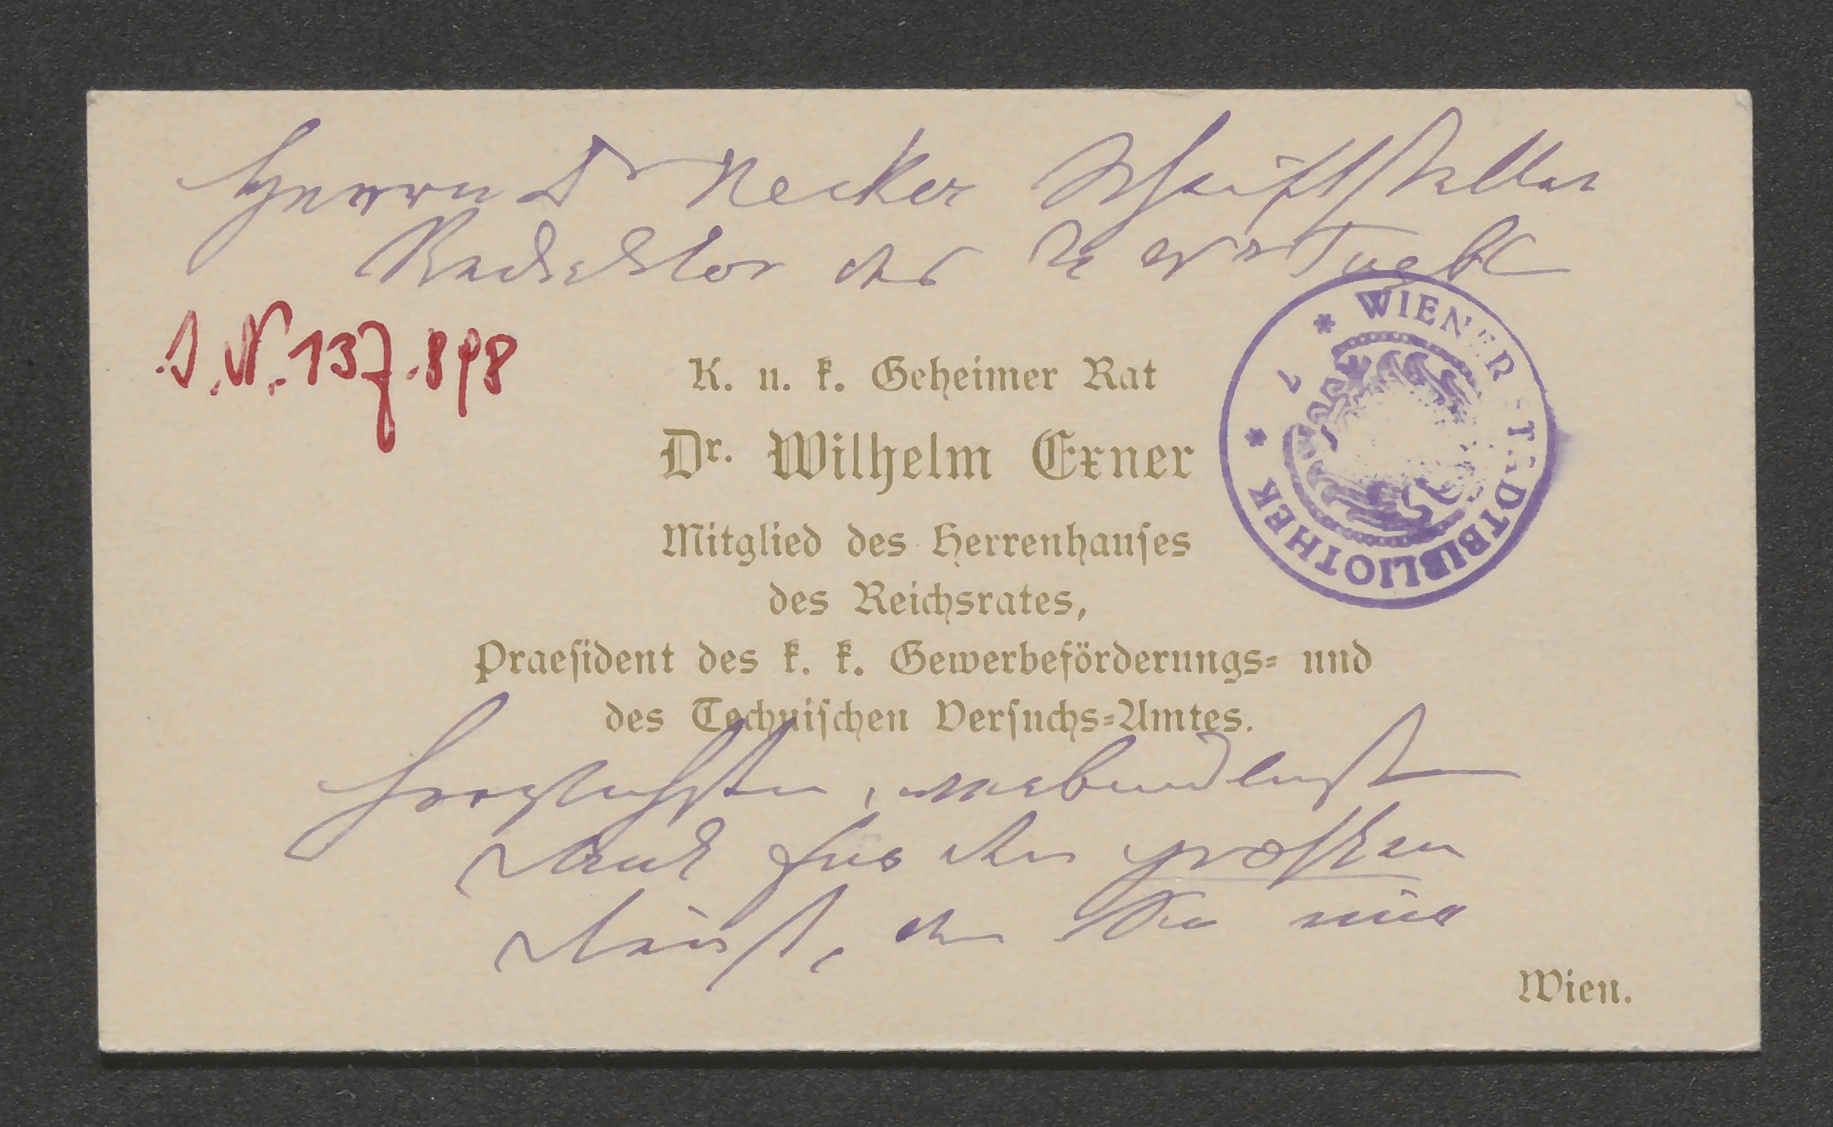 Herrn Dr Necker Schriftsteller
Redaktor des N W Tagbl
I.N. 137.898
K. u. k. Geheimer Rat
Dr. Wilhelm Exner
Mitglied des Herrenhauses
des Reichsrates,
Praesident des k. k. Gewerbeförderungs- und
des Technischen Versuchs-Amtes.
herzlichsten, verbindlichst
Dank für den großen
Dienst, den Sie mir
Wien.
* WIENER STADTBIBLIOTHEK *